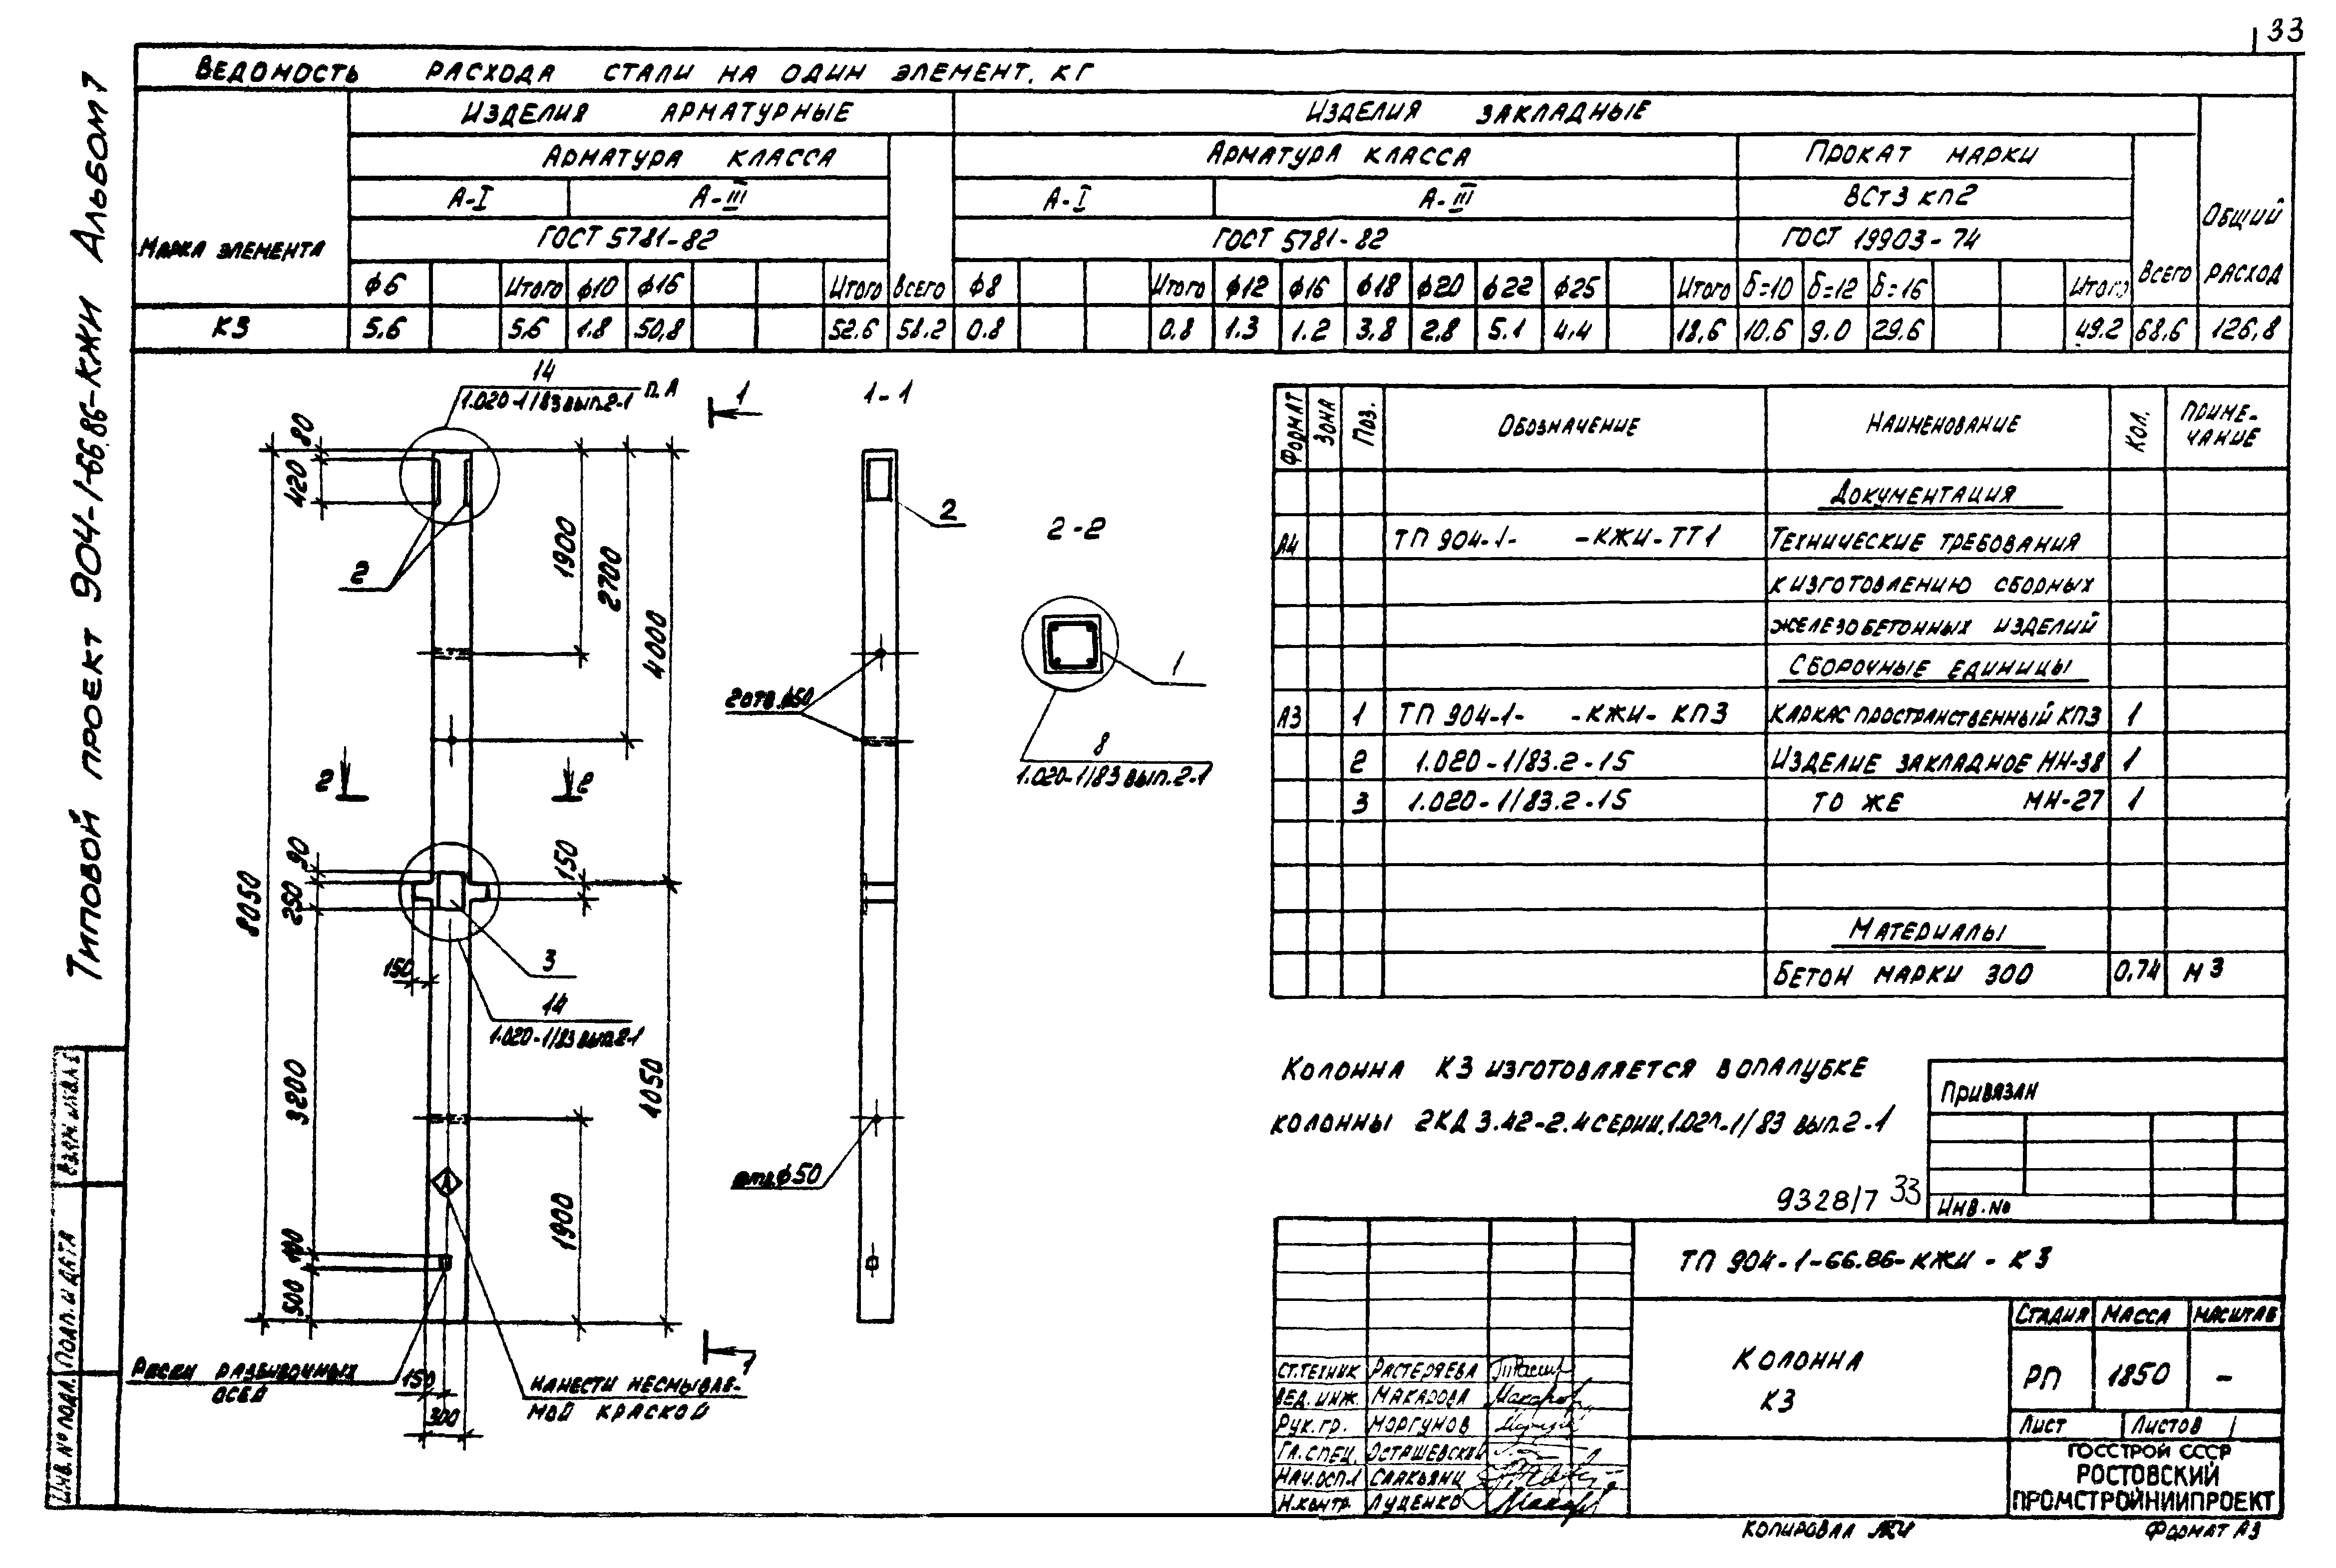 33
Типовой проект 904-1-66.86-КЖИ Альбом 7
Ведомость расхода стали на один элемент, кг
Марка элемента
Изделия арматурные
Изделия закладные
Общий расход
Арматура класса
Арматура класса
Прокат марки
А-I
А-III
А-I
А-III
ВСт3 кп2
ГОСТ 5781-82
ГОСТ 5781-82
ГОСТ 19903-74
ф6 Итого ф10 ф16 Итого Всего ф8 Итого ф12 ф16 ф18 ф20 ф22 ф25 Итого б=10 б=12 б=16 Итого Всего
К3 5,6 5,6 1.8 50,8 52.6 58.2 0.8 0.8 1.3 1.2 3.8 2.8 5.1 4,4 18,6 10,6 9.0 29.6 49.2 68.6 126,8
14
1.020-1/83 вып.2-1 п.А
1
1-1
80
420
2
1900
2700
4000
2
2-2
1
8
1.020-1/83 вып.2-1
2 отв. ф50
2
2
90
250
8050
150
150
3
14
1.020-1/83 вып.2-1
3200
4050
1900
100
500
А
отв. ф50
1
Риски разбивочных
осей
150
300
Нанести несмывае-
мой краской
Формат Зона Поз. Обозначение Наименование Кол. Приме-
чание
Документация
А4 ТП 904-1- -КЖИ-ТТ1 Технические требования
к изготовлению сборных
железобетонных изделий
Сборочные единицы
А3 1 ТП 904-1- -КЖИ-КП3 Каркас пространственный КП3 1
2 1.020-1/83.2-15 Изделие закладное МН-38 1
3 1.020-1/83.2-15 то же МН-27 1
Материалы
Бетон марки 300 0,74 м3
Колонна К3 изготовляется в опалубке
колонны 2КД 3.42-2.4 серии 1.020-1/83 вып.2-1
9328/7 33
Привязан
Инв.№
ТП 904-1-66.86-КЖИ-К3
Колонна
К3
Стадия Масса Масштаб
РП 1850 -
Лист Листов 1
Госстрой СССР
Ростовский
Промстройниипроект
Ст.техник Растеряева
Вед.инж. Макарова
Рук.гр. Моргунов
Гл.спец. Осташевский
Нач.осп-1 Саакьянц
Н.контр. Луценко
Взам.инв.№
Подп. и дата
Инв.№ подл.
Копировал
Формат А3